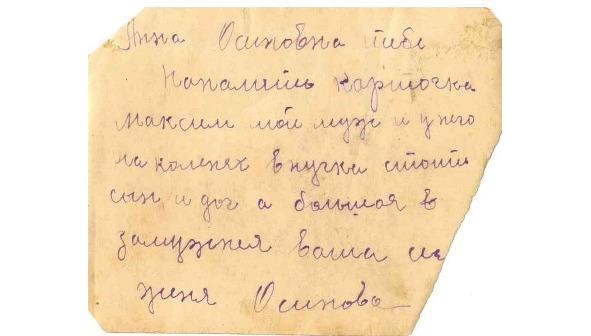 Анна Осиповна тибе
На памить карточка
Максим мой муж и у него
на коленех внучка стоит
сын и доч а большая в
замужня ваша
женя Осипова